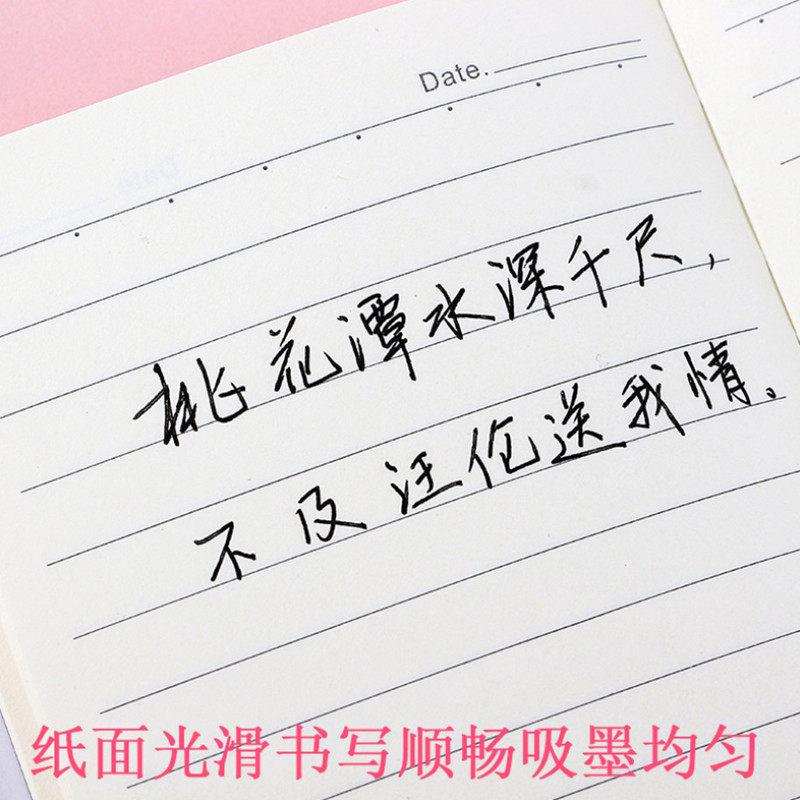 Date.
桃花潭水深千尺，
不及汪伦送我情。
纸面光滑书写顺畅吸墨均匀